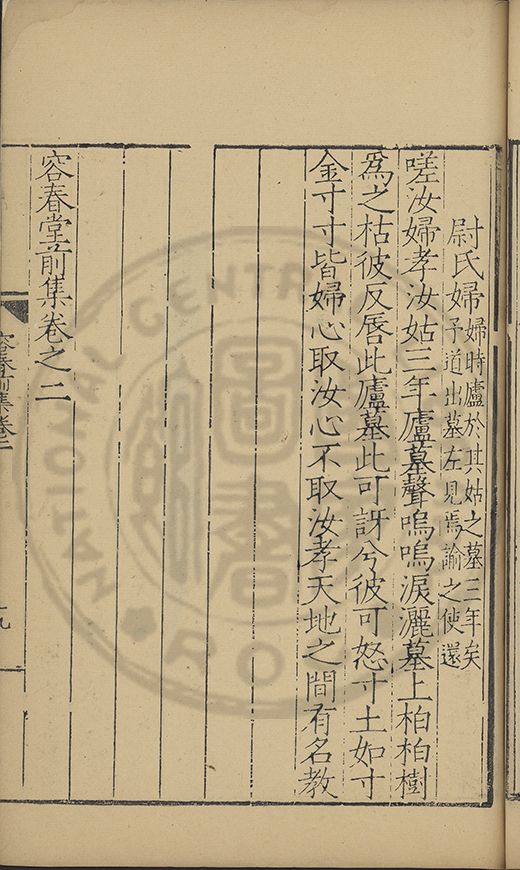 尉氏婦婦時廬於其姑之墓三年矣
予道出墓左見焉諭之使還
嗟汝婦孝汝姑三年廬墓聲嗚嗚淚灑墓上柏柏樹
爲之枯彼反唇此廬墓此可訝兮彼可怒寸土如寸
金寸寸皆婦心取汝心不取汝孝天地之間有名教
容春堂前集卷之二
容春前集卷二
九